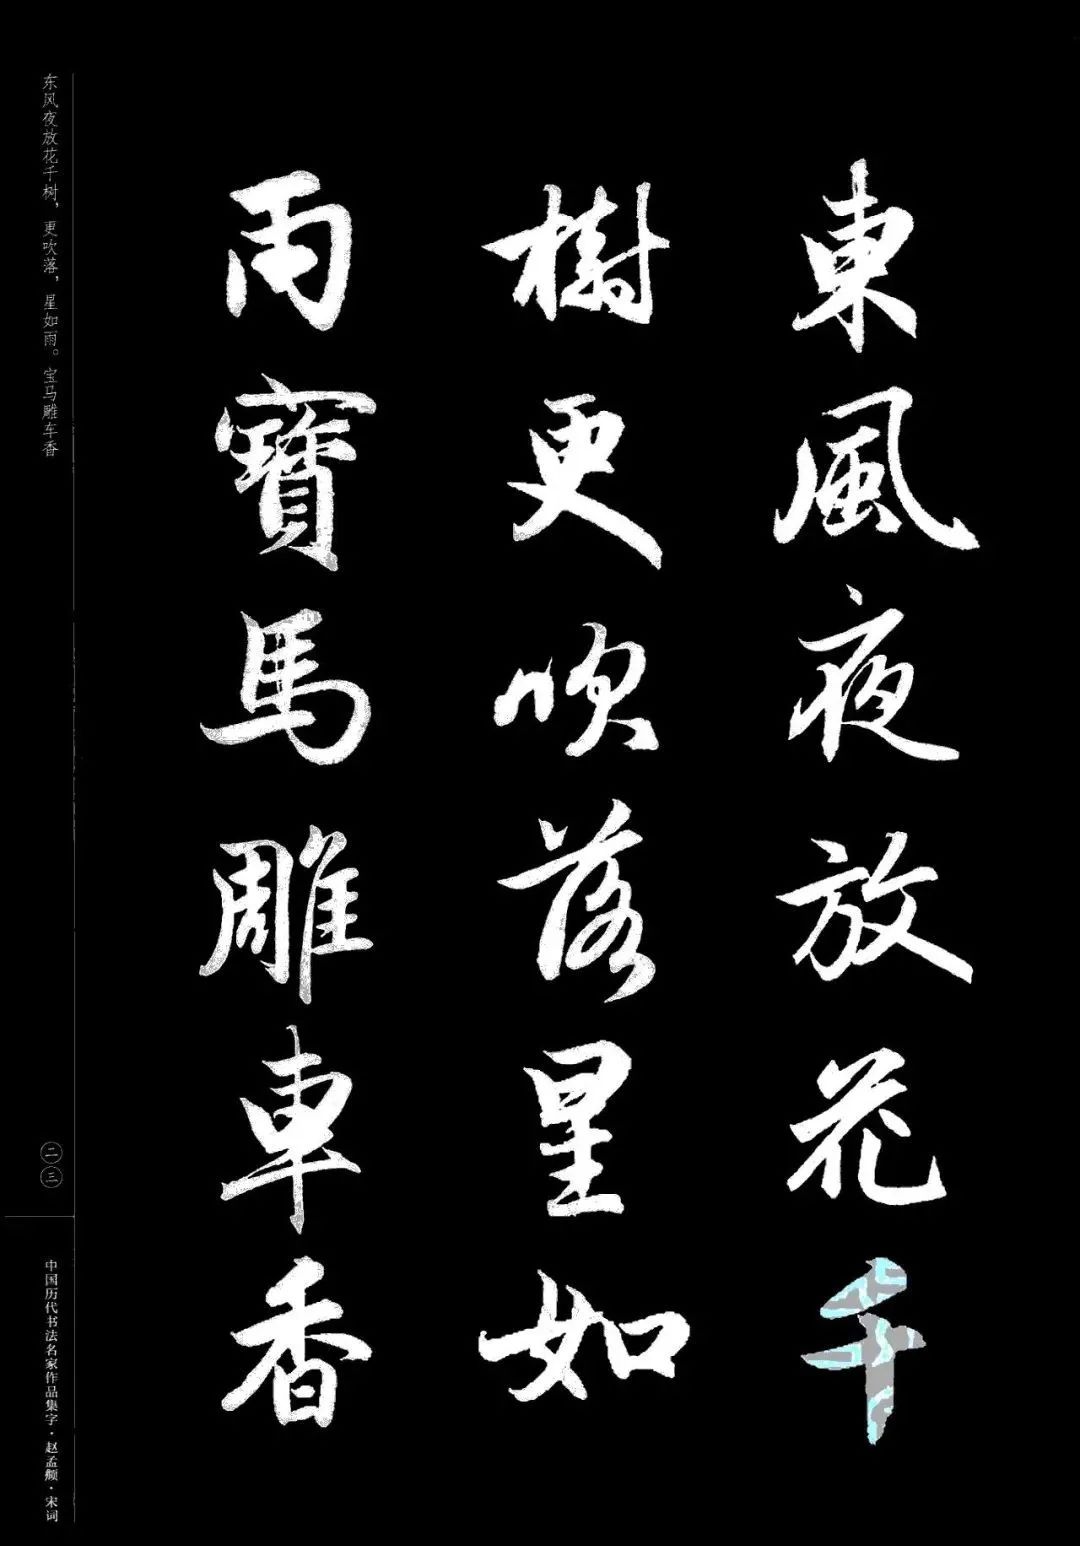 東風夜放花千
樹更吹落星如
雨寶馬雕車香
东风夜放花千树，更吹落，星如雨。宝马雕车香
二三
中国历代书法名家作品集字·赵孟頫·宋词